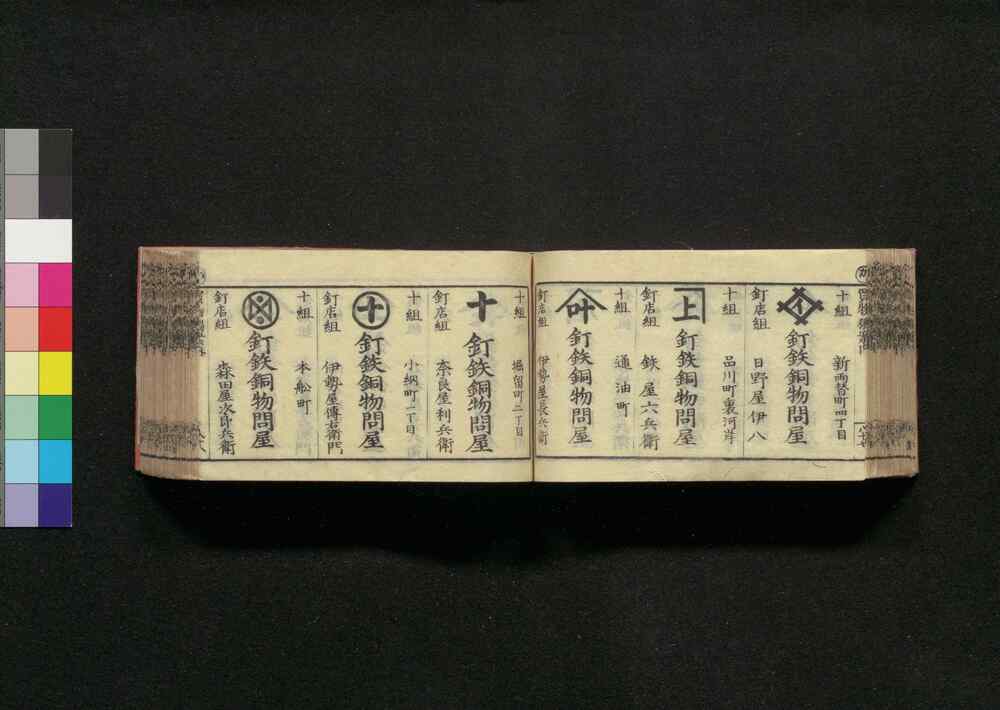 十組 新両替町四丁目
イ 釘鉄銅物問屋
釘店組 日野屋伊八
十組 品川町裏河岸
上 釘鉄銅物問屋
釘店組 鉄屋六兵衛
十組 通油町
叶 釘鉄銅物問屋
釘店組 伊勢屋長兵衛
十組 堀留町二丁目
十 釘鉄銅物問屋
釘店組 奈良屋利兵衛
十組 小網町一丁目
十 釘鉄銅物問屋
釘店組 伊勢屋傳右衛門
十組 本舩町
釘鉄銅物問屋
釘店組 森田屋次郎兵衛